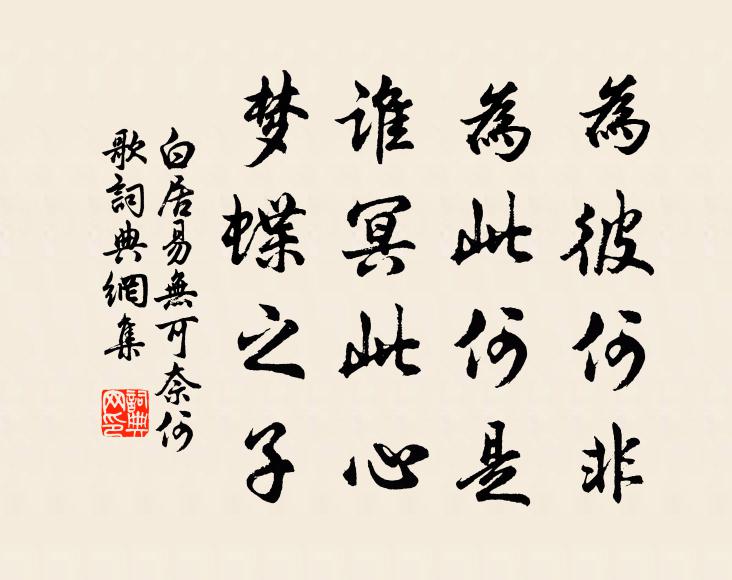 為彼何非
為此何是
誰冥此心
梦蝶之子
白居易無可奈何
歌詞典網集
詞典
网印